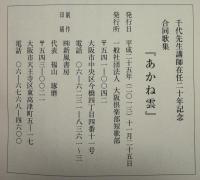 千代先生講師在任二十年記念
合同歌集
『あかね雲』
発行日 平成二十五年(二〇一三)十一月二十五日
発行所 一般社団法人 大阪倶楽部短歌部
〒五四一-〇〇四二
大阪市中央区今橋四丁目四番十一号
電話 〇六-六二三一-八三六一
制作 ㈱新風書房
印刷 代表 福山 琢磨
〒五四三-〇〇二一
大阪市天王寺区東高津町五-一七
電話 〇六-六七六八-四六〇〇